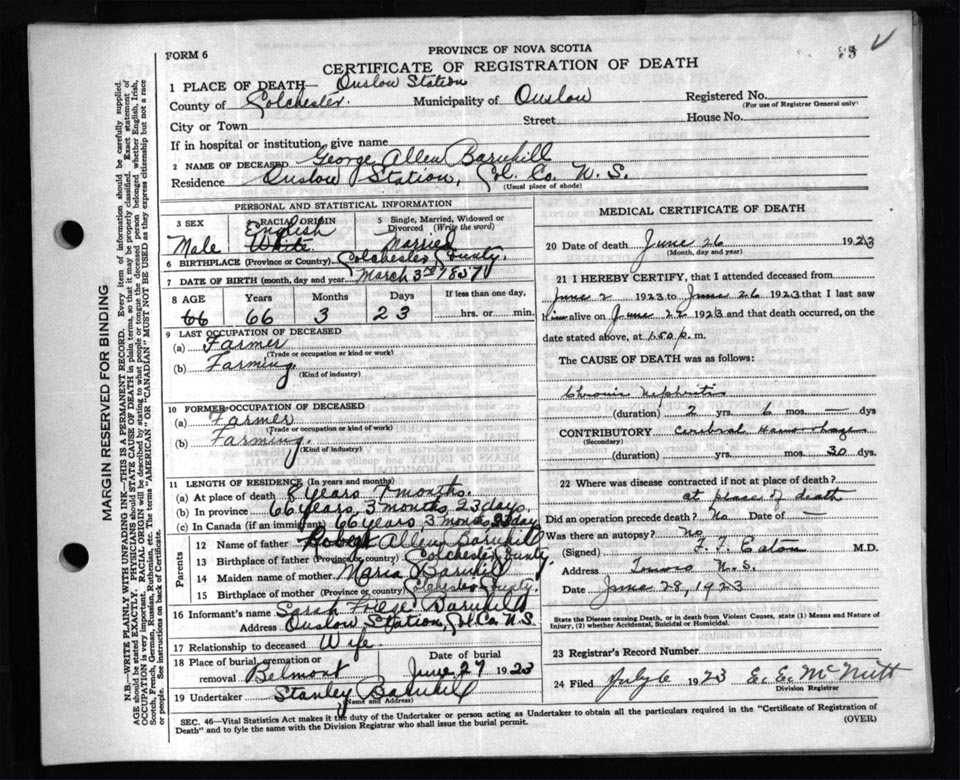 PROVINCE OF NOVA SCOTIA
FORM 6
CERTIFICATE OF REGISTRATION OF DEATH
1 PLACE OF DEATH— Onslow Station
County of Colchester. Municipality of Onslow Registered No.
(For use of Registrar General only)
City or Town Street House No.
If in hospital or institution, give name
2 NAME OF DECEASED George Allen Barnhill
Residence Onslow Station, Col. Co. N. S.
(Usual place of abode)
PERSONAL AND STATISTICAL INFORMATION
3 SEX Male
4 RACIAL ORIGIN English White
5 Single, Married, Widowed or Divorced (Write the word) Married
6 BIRTHPLACE (Province or Country) Colchester County.
7 DATE OF BIRTH (month, day and year) March 3rd 1857
8 AGE Years Months Days If less than one day,
66 66 3 23 hrs. or min.
9 LAST OCCUPATION OF DECEASED
(a) Farmer
(Trade or occupation or kind or work)
(b) Farming.
(Kind of industry)
10 FORMER OCCUPATION OF DECEASED
(a) Farmer
(Trade or occupation or kind or work)
(b) Farming.
(Kind of industry)
11 LENGTH OF RESIDENCE (In years and months)
(a) At place of death 8 years 7 months.
(b) In province 66 years, 3 months, 23 days,
(c) In Canada (if an immigrant) 66 years, 3 months, 23 days
Parents
12 Name of father Robert Allen Barnhill
13 Birthplace of father (Province or country) Colchester County,
14 Maiden name of mother Maria Barnhill
15 Birthplace of mother (Province or country) Colchester County.
16 Informant's name Sarah Barnhill
Address Onslow Station, Col. Co. N.S.
17 Relationship to deceased Wife.
18 Place of burial, cremation or removal Belmont Date of burial June 27 1923
19 Undertaker Stanley Barnhill
(Name and Address)
MEDICAL CERTIFICATE OF DEATH
20 Date of death June 26 1923
(Month, day and year)
21 I HEREBY CERTIFY, that I attended deceased from
June 2 1923 to June 26 1923 that I last saw
him alive on June 22 1923 and that death occurred, on the
date stated above, at 1.50 p. m.
The CAUSE OF DEATH was as follows:
Chronic Nephritis
(duration) 2 yrs. 6 mos. — dys
CONTRIBUTORY Cerebral Haemorrhage
(Secondary)
(duration) yrs. mos. 30 dys.
22 Where was disease contracted if not at place of death?
at place of death
Did an operation precede death? No Date of —
Was there an autopsy? No
(Signed) F. F. Eaton M.D.
Address Truro N. S.
Date June 28, 1923
State the Disease causing Death, or in death from Violent Causes, state (1) Means and Nature of
Injury, (2) whether Accidental, Suicidal or Homicidal.
23 Registrar's Record Number
24 Filed July 6 1923 E. E. McNutt
Division Registrar
SEC. 46—Vital Statistics Act makes it the duty of the Undertaker or person acting as Undertaker to obtain all the particulars required in the "Certificate of Registration of
Death" and to fyle the same with the Division Registrar who shall issue the burial permit. (OVER)
MARGIN RESERVED FOR BINDING
N.B.—WRITE PLAINLY WITH UNFADING INK—THIS IS A PERMANENT RECORD. Every item of information should be carefully supplied.
AGE should be stated EXACTLY. PHYSICIANS should STATE CAUSE OF DEATH in plain terms, so that it may be properly classified. Exact statement of
OCCUPATION is very important. RACIAL ORIGIN will be described by stating to what people or tongue the deceased person belonged whether English, Irish,
Scotch, French, German, Russian, Ruthenian, etc. The terms "AMERICAN" OR "CANADIAN" MUST NOT BE USED as they express citizenship but not a race
or people. See instructions on back of Certificate.